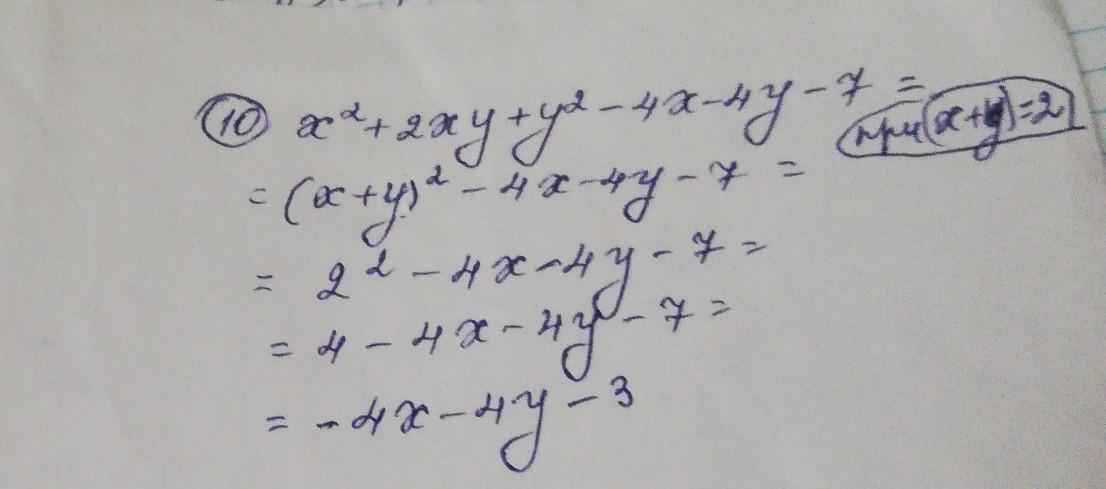 ⑩ x² + 2xy + y² - 4x - 4y - 7 =
при (x+y)=2
= (x+y)² - 4x - 4y - 7 =
= 2² - 4x - 4y - 7 =
= 4 - 4x - 4y - 7 =
= - 4x - 4y - 3